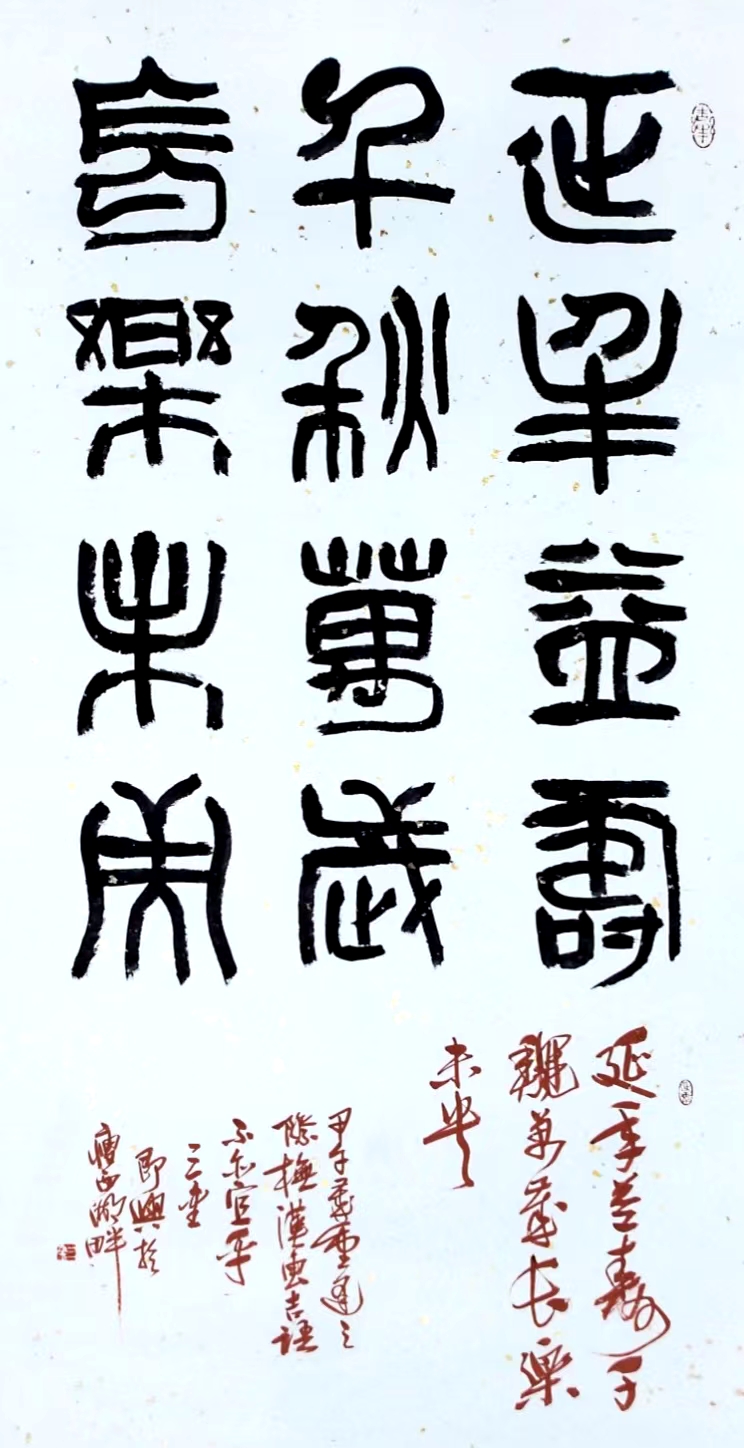 延年益壽
千秋萬歲
長樂未央
延年益壽千
龝萬歲長樂
未央
甲午歲重之
際橅漢吉語
三
即興於
瘦西湖畔